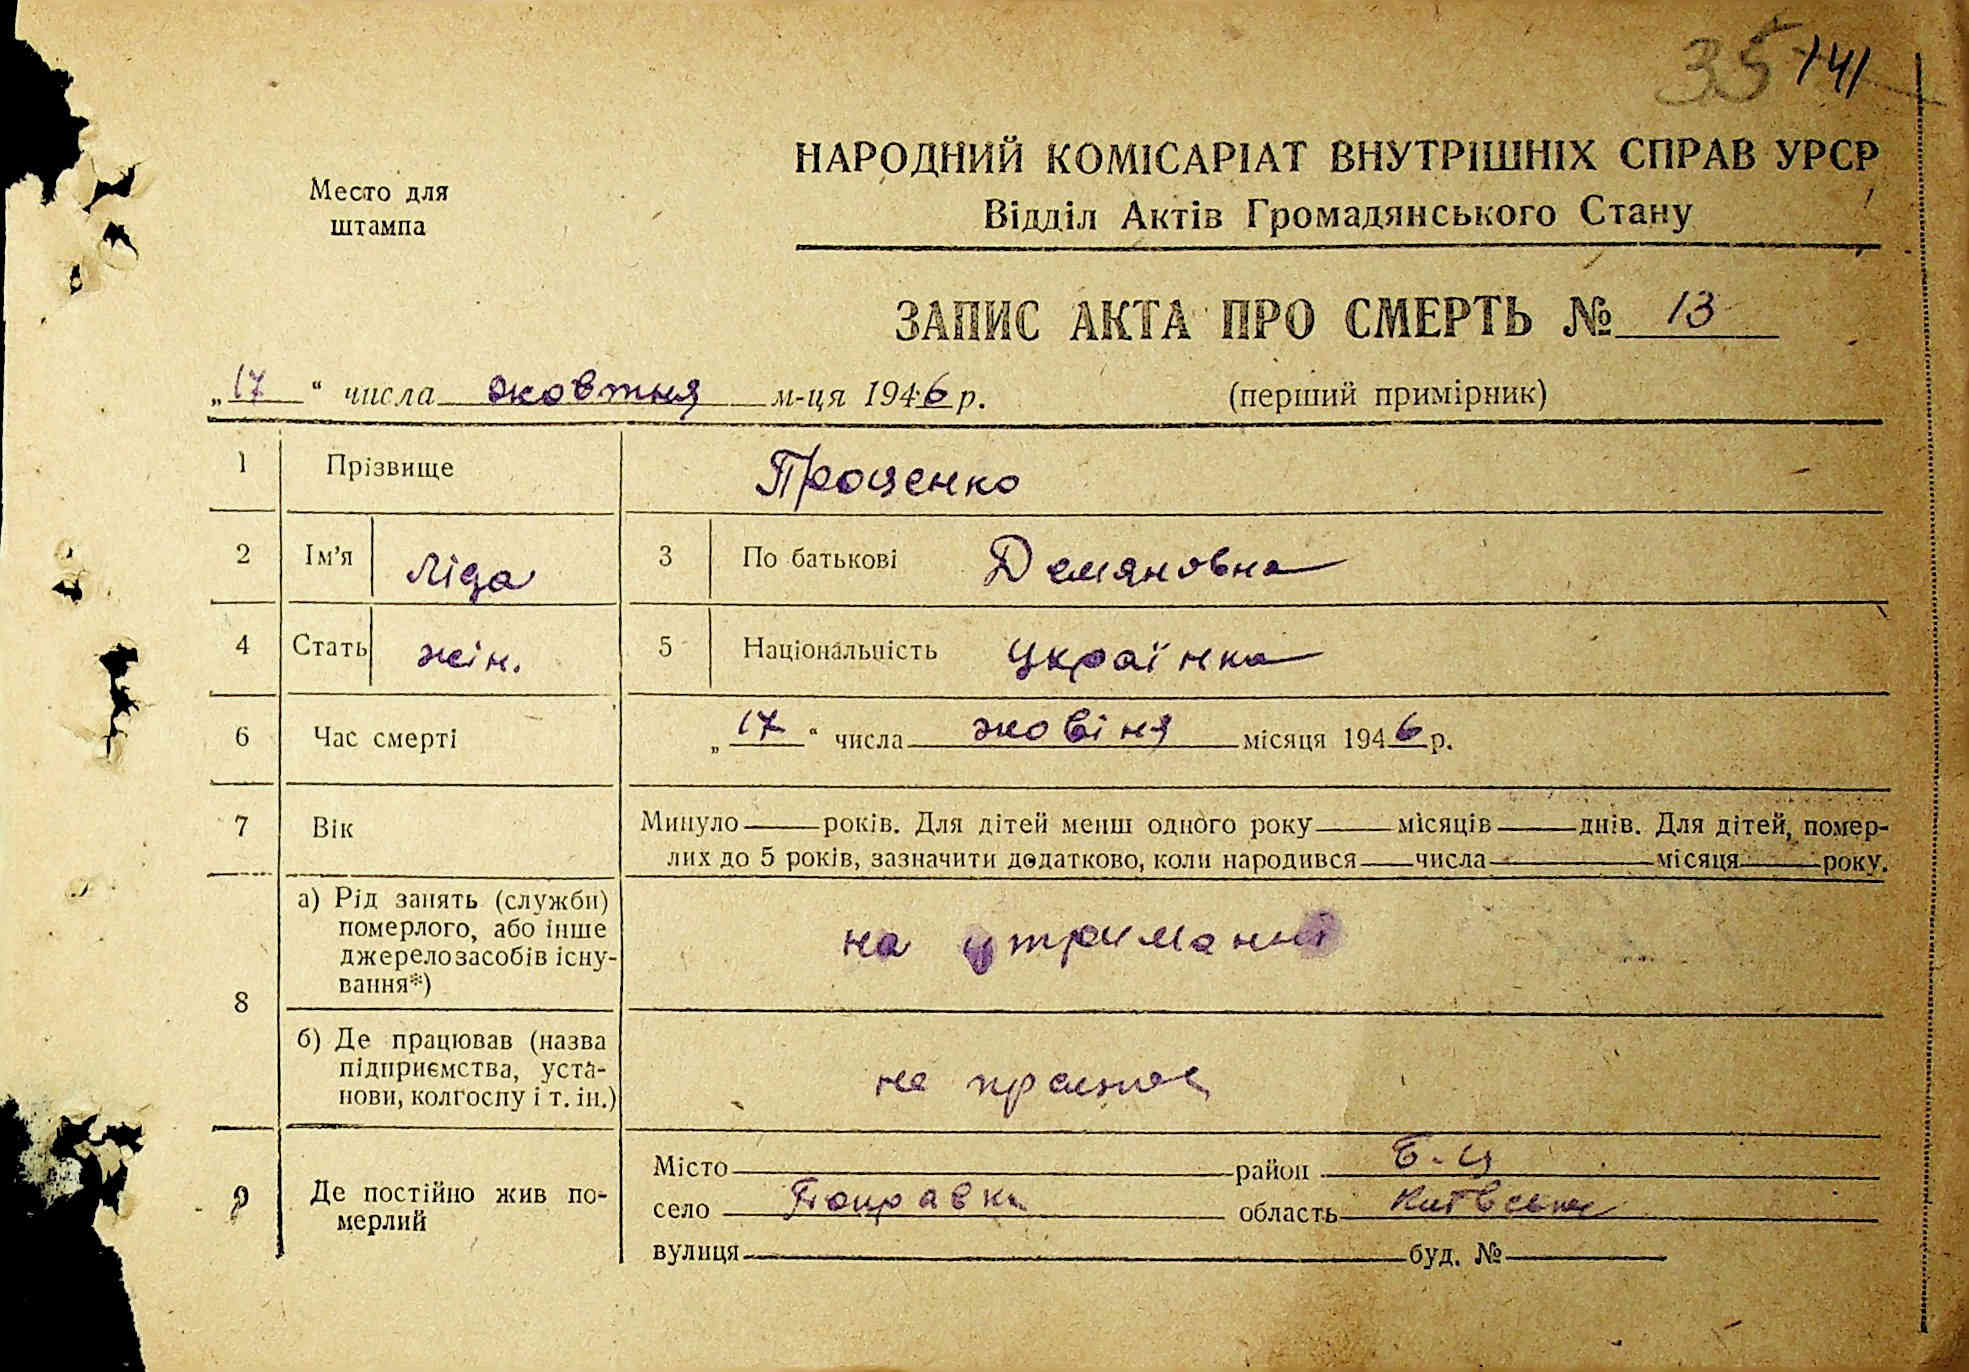 35 141
НАРОДНИЙ КОМІСАРІАТ ВНУТРІШНІХ СПРАВ УРСР
Место для
штампа
Відділ Актів Громадянського Стану
ЗАПИС АКТА ПРО СМЕРТЬ № 13
„17“ числа жовтня м-ця 1946 р. (перший примірник)
1 Прізвище Проценко
2 Ім'я Ліда 3 По батькові Демяновна
4 Стать жін. 5 Національність Українка
6 Час смерті „17“ числа жовтня місяця 1946 р.
7 Вік Минуло років. Для дітей менш одного року місяців днів. Для дітей, помер-
лих до 5 років, зазначити додатково, коли народився числа місяця року.
8 а) Рід занять (служби)
померлого, або інше
джерело засобів існу-
вання*)
на утриманні
б) Де працював (назва
підприємства, уста-
нови, колгоспу і т. ін.)
не працює
9 Де постійно жив по-
мерлий
Місто район Б-Ц
село Поправка область Київська
вулиця буд. №